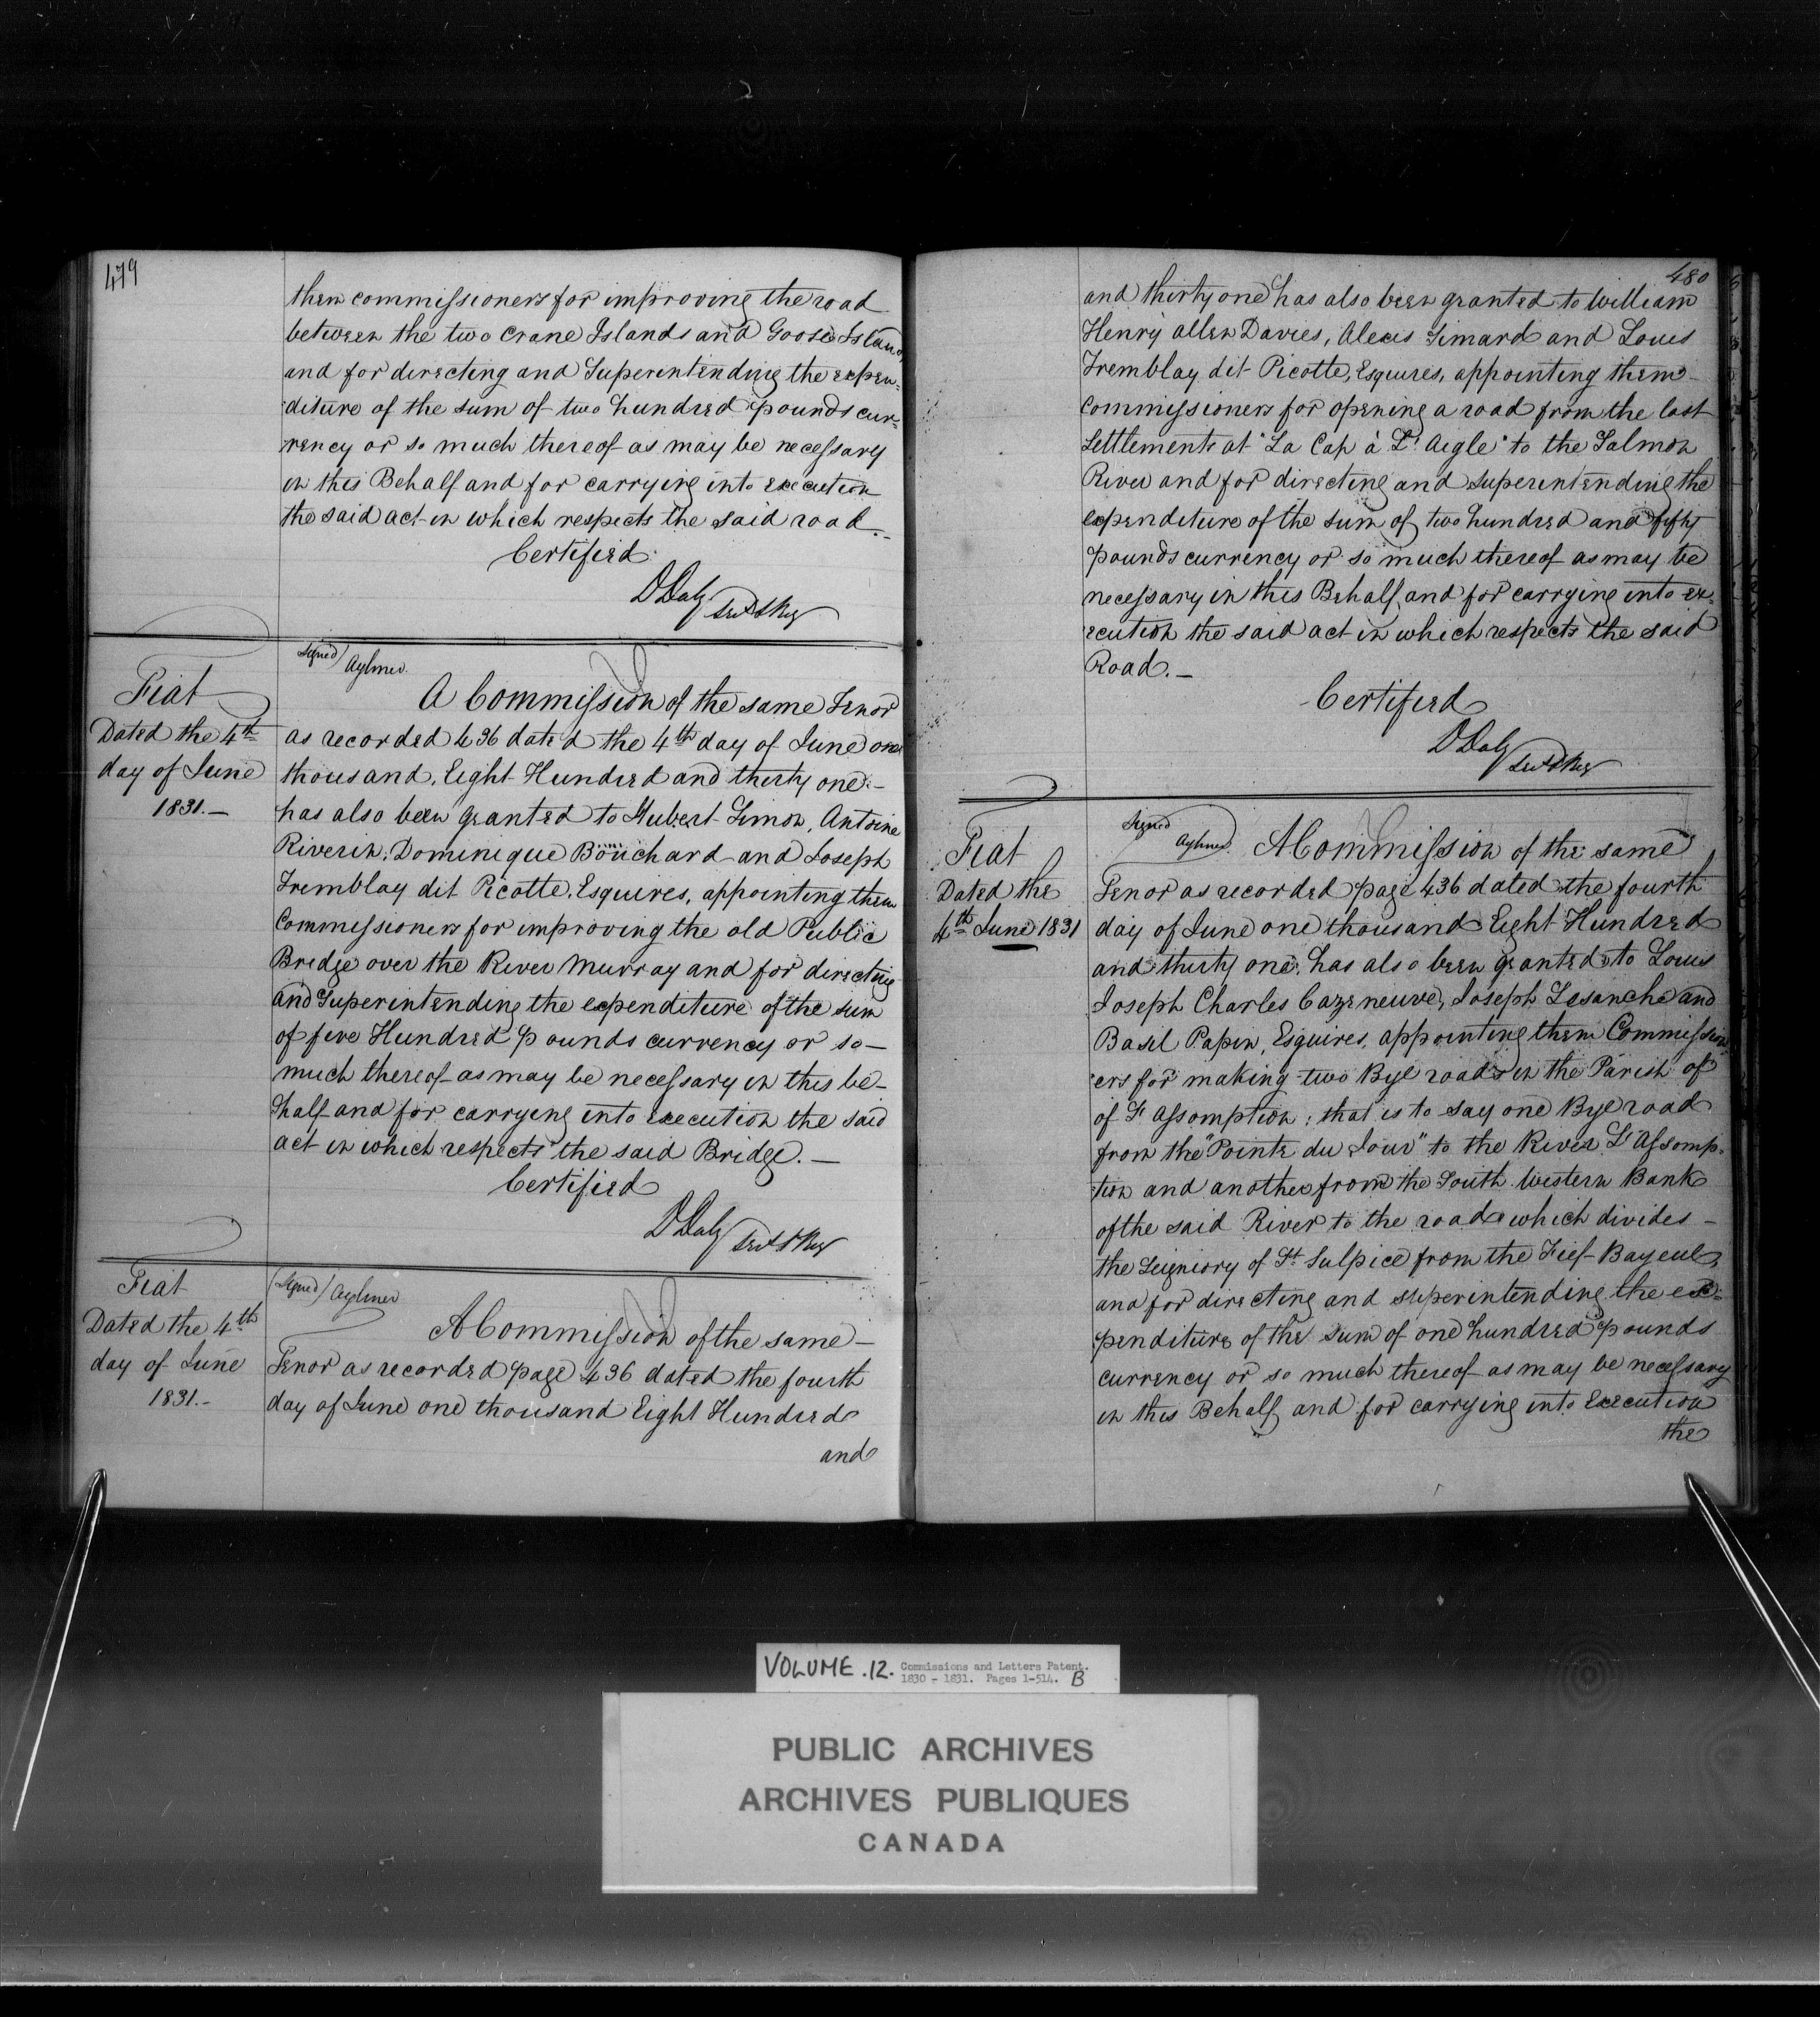 479
them commissioners for improving the road
between the two Crane Islands and Goose Island,
and for directing and Superintending the expen-
diture of the sum of two hundred pounds cur-
rency or so much thereof as may be necessary
in this Behalf and for carrying into execution
the said act in which respects the said road.-
Certified
DDaly
Fiat
Dated the 4th
day of June
1831.-
Signed) Aylmer
A Commission of the same Tenor
as recorded 436 dated the 4th day of June one
thousand, Eight Hundred and thirty one-
has also been granted to Hubert Simon, Antoine
Riverin, Dominique Bouchard and Joseph
Tremblay dit Picotte, Esquires, appointing them
Commissioners for improving the old Public
Bridge over the River Murray and for directing
and Superintending the expenditure of the sum
of five Hundred pounds currency or so-
much thereof as may be necessary in this be-
half and for carrying into Execution the said
act in which respects the said Bridge.-
Certified
DDaly
Fiat
Dated the 4th
day of June
1831.-
(Signed) Aylmer
A Commission of the same-
Tenor as recorded page 436 dated the fourth
day of June one thousand Eight Hundred
and
480
and thirty one has also been granted to William
Henry allen Davies, Alexis Simard and Louis
Tremblay dit Picotte, Esquires, appointing them-
Commissioners for opening a road from the last
Settlements at "La Cap à L'Aigle" to the Salmon
River and for directing and superintending the
expenditure of the sum of two hundred and fifty
pounds currency or so much thereof as may be
necessary in this Behalf, and for carrying into ex-
ecution the said act in which respects the said
Road.-
Certified
DDaly
Fiat
Dated the
4th June 1831
Signed
Aylmer
A Commission of the same
Tenor as recorded page 436 dated the fourth
day of June one thousand Eight Hundred
and thirty one, has also been granted to Louis
Joseph Charles Cazeneuve, Joseph Lesanche and
Basil Papin, Esquires, appointing them Commission
ers for making two Bye roads in the Parish of
of L'assomption: that is to say one Bye road
from the "Pointe du Jour" to the River L'Assomp-
tion and another from the South Western Bank
of the said River to the road which divides-
the Seigniory of St Sulpice from the Fief Bayeul,
and for directing and superintending the ex-
penditure of the sum of one hundred pounds
currency or so much thereof as may be necessary
in this Behalf and for carrying into Execution
the
VOLUME.12. Commissions and Letters Patent.
1830 - 1831. Pages 1-514. B
PUBLIC ARCHIVES
ARCHIVES PUBLIQUES
CANADA